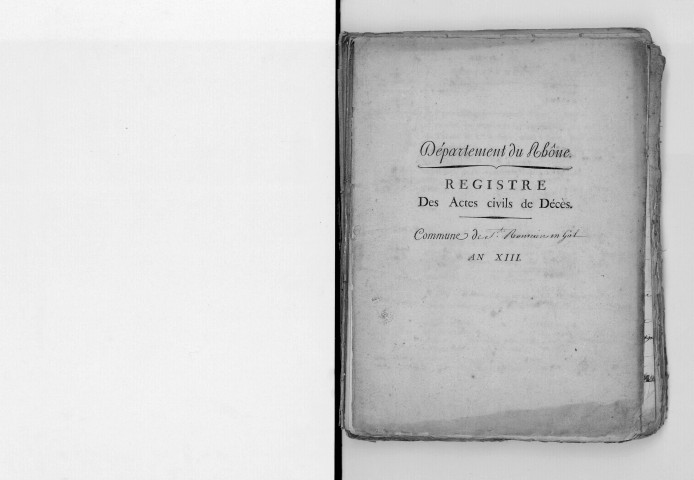 Département du Rhône.
REGISTRE
Des Actes civils de Décès.
Commune de St. Romain en Gal
AN XIII.